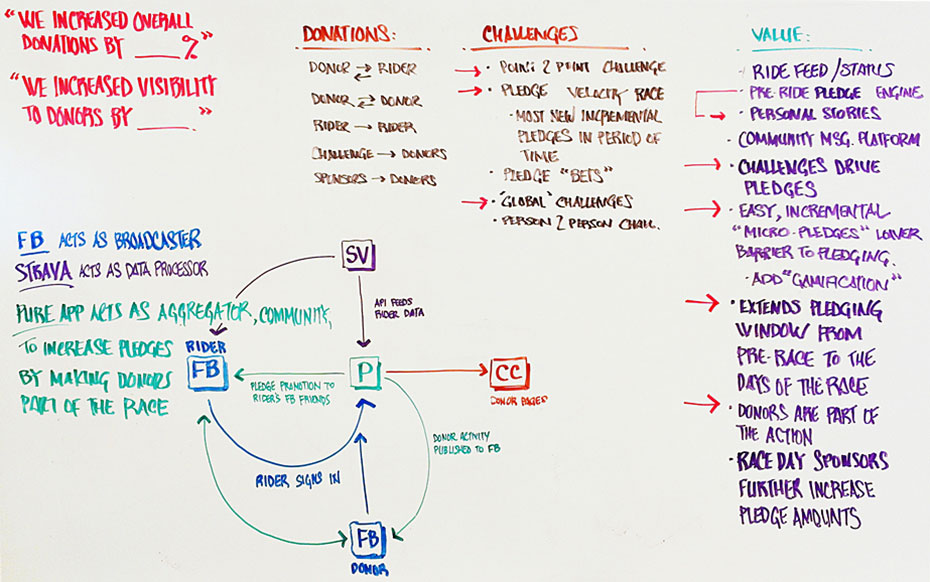 "WE INCREASED OVERALL
DONATIONS BY ____%"
"WE INCREASED VISIBILITY
TO DONORS BY ____"
DONATIONS:
DONOR → RIDER
←
DONOR ⇄ DONOR
RIDER → RIDER
CHALLENGE → DONORS
SPONSORS → DONORS
CHALLENGES
→ • POINT 2 POINT CHALLENGE
→ • PLEDGE VELOCITY RACE
• MOST NEW INCREMENTAL
PLEDGES IN PERIOD OF
TIME
• PLEDGE "BETS"
→ • "GLOBAL" CHALLENGES
• PERSON 2 PERSON CHALL.
VALUE:
• RIDE FEED/STATUS
• PRE-RIDE PLEDGE ENGINE
→ • PERSONAL STORIES
• COMMUNITY MSG. PLATFORM
→ • CHALLENGES DRIVE
PLEDGES
→ • EASY, INCREMENTAL
"MICRO-PLEDGES" LOWER
BARRIER TO PLEDGING.
• ADD "GAMIFICATION"
→ • EXTENDS PLEDGING
WINDOW FROM
PRE-RACE TO THE
DAYS OF THE RACE
→ • DONORS ARE PART OF
THE ACTION
• RACE DAY SPONSORS
FURTHER INCREASE
PLEDGE AMOUNTS
FB ACTS AS BROADCASTER
STRAVA ACTS AS DATA PROCESSOR
PURE APP ACTS AS AGGREGATOR, COMMUNITY,
TO INCREASE PLEDGES
BY MAKING DONORS
PART OF THE RACE
SV
API FEEDS
RIDER DATA
RIDER
FB
P
CC
DONOR PAGES
PLEDGE PROMOTION TO
RIDER'S FB FRIENDS
DONOR ACTIVITY
PUBLISHED TO FB
RIDER SIGNS IN
FB
DONOR